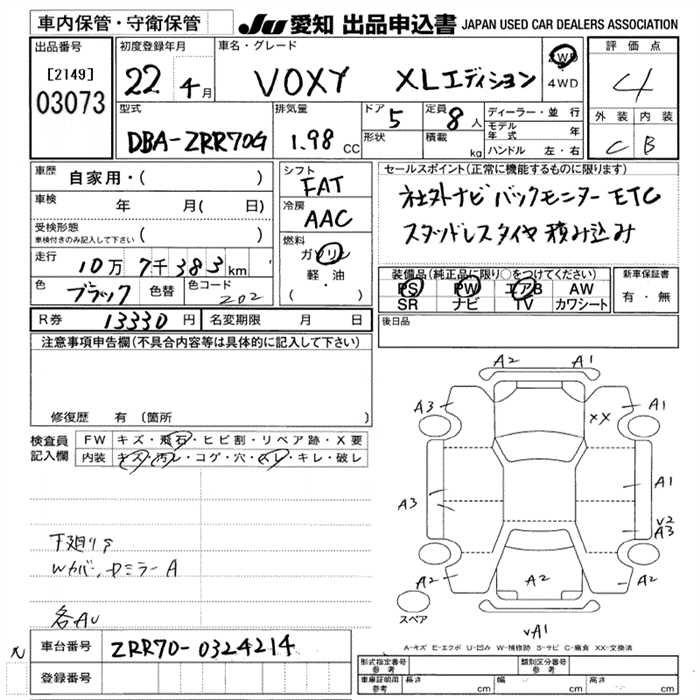 車内保管・守衛保管
JU 愛知 出品申込書 JAPAN USED CAR DEALERS ASSOCIATION
出品番号
[2149]
03073
初度登録年月
22年 4月
車名・グレード
VOXY XLエディション
2WD
4WD
評価点
4
外装 内装
C B
型式
DBA-ZRR70G
排気量
1.98 CC
ドア 5
形状
定員 8人
積載 kg
ディーラー・並行
モデル年式 年
ハンドル 左・右
車歴 自家用・( )
車検 年 月( 日)
受検形態
車検付きのみ記入して下さい ( )
走行 10万7千383km
色 ブラック 色替 色コード 202
シフト
FAT
冷房
AAC
燃料
ガソリン
軽油
( ・ )
セールスポイント(正常に機能するものに限ります)
社外ナビ バックモニター ETC
スタッドレスタイヤ積み込み
装備品(純正品に限り○をつけてください)
PS PW エアB AW
SR ナビ TV カワシート
新車保証書
有・無
R券 13330円 名変期限 月 日
後日品
注意事項申告欄(不具合内容等は具体的に記入して下さい)
修復歴 有(箇所 )
検査員記入欄
FW キズ・飛石・ヒビ割・リペア跡・X要
内装 キズ・汚レ・コゲ・穴・スレ・キレ・破レ
下廻りS
Wカバー、ドミラーA
各AU
A2 A1
A3 XX A1
A3 A1
V2
A3
A2 A2 A2
スペア
VA1
A-キズ E-エクボ U-凹み W-補修跡 S-サビ C-腐食 XX-交換済
車台番号 ZRR70-0324214
登録番号
型式指定番号 参考
類別区分番号 参考
車庫証明用 参考 長さ cm 幅 cm 高さ cm